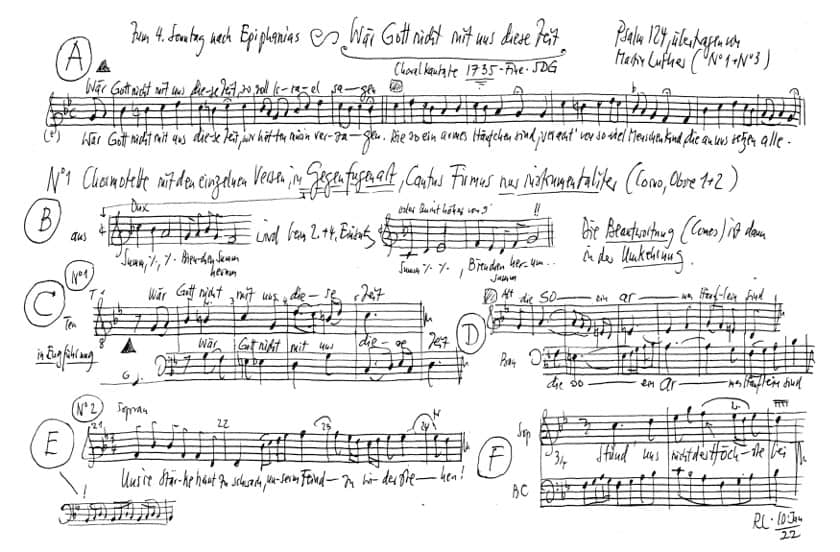 Zum 4. Sonntag nach Epiphanias Wär Gott nicht mit uns diese Zeit
Psalm 124, übertragen von
Martin Luther (N°1+N°3)
Choralkantate 1735
SDG
A
Wär Gott nicht mit uns die-se Zeit, so soll Is-ra-el sa-gen
Wär Gott nicht mit uns die-se Zeit, wir hätten müssen ver-za-gen. Die so ein armes Häuflein sind, veracht' von so viel Menschenkind, die an uns setzen alle.
N°1 Chormotette mit den einzelnen Versen, in Gegenfugenart, Cantus Firmus nur instrumentaliter (Corno, Oboe 1+2)
B
Dux
aus
Summ, ٪, ٪. Bienchen summ
herum
und beim 2.+4. Einsatz
oder Quint höher von g'
!!
Summ ٪ ٪, Bienchen her-um..
summ
Die Beantwortung (Comes) ist dann
in der Umkehrung.
C
N°1
Ten
in Engführung
Wär Gott nicht mit uns die-se Zeit
Wär Gott nicht mit uns die-se Zeit
D
Alt die so ein ar-mes Häuf-lein sind
die so ein ar-mes Häuflein sind
E
N°2 Sopran
21 22 23 24
Uns're Stär-ke heißt zu schwach, un-serm Feind zu wi-der-ste-hen!
!
F
Sop
3/4
Stünd' uns nicht der Höch-ste bei
BC
RL. 10 Jan
22